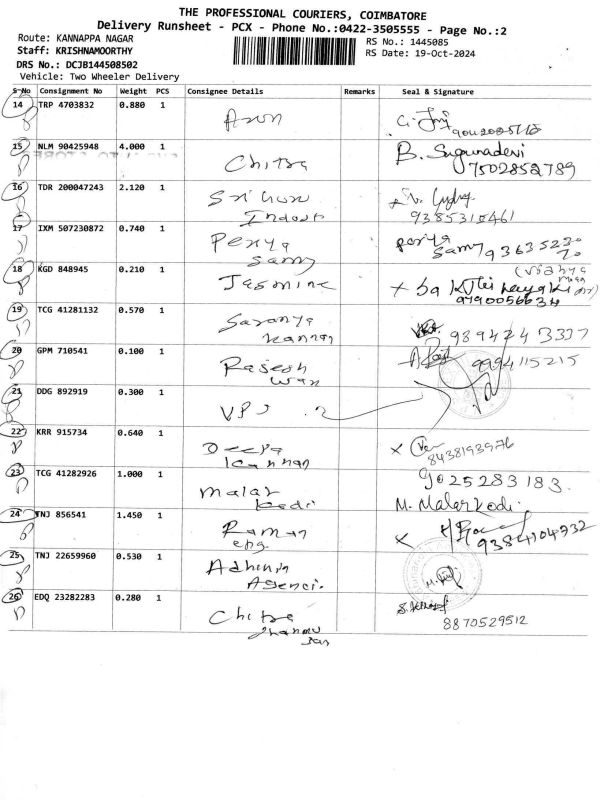 THE PROFESSIONAL COURIERS, COIMBATORE
Delivery Runsheet - PCX - Phone No.:0422-3505555 - Page No.:2
Route: KANNAPPA NAGAR
RS No.: 1445085
Staff: KRISHNAMOORTHY
RS Date: 19-Oct-2024
DRS No.: DCJB144508502
Vehicle: Two Wheeler Delivery
S-No Consignment No Weight PCS Consignee Details Remarks Seal & Signature
14 TRP 4703832 0.880 1 Arun
15 NLM 90425948 4.000 1 Chitra B. Sugunadevi
7502852789
16 TDR 200047243 2.120 1
9385310461
17 IXM 507230872 0.740 1 Periya
Samy
periya
samy
18 KGD 848945 0.210 1 Jasmine
9790056634
19 TCG 41281132 0.570 1 Saranya
Kannan
9894243337
20 GPM 710541 0.100 1 Rajesh
9994115215
21 DDG 892919 0.300 1 VPJ
22 KRR 915734 0.640 1 Deepa
Kannan
8438193976
23 TCG 41282926 1.000 1 Malar
Kodi
9025283183
M. Malarkodi
24 TNJ 856541 1.450 1 Raman
eng.
9384104932
25 TNJ 22659960 0.530 1
Agenci.
26 EDQ 23282283 0.280 1 Chitra
8870529512